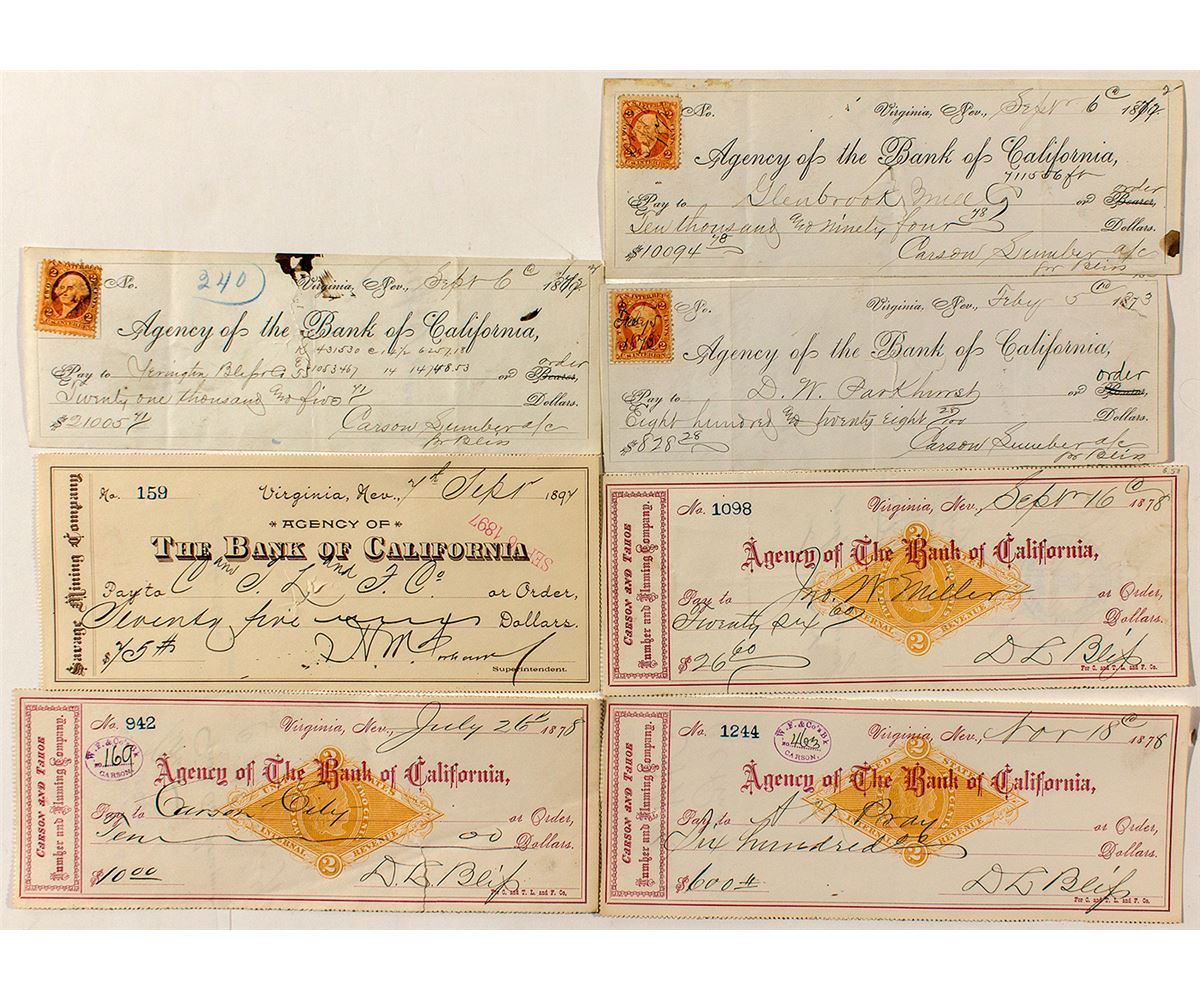 No. Virginia, Nev., Sept 6 1872
Agency of the Bank of California,
711506 ft
Pay to Glenbrook Mill or Bearer, order
Ten thousand and ninety four 48 Dollars.
$10094 48 Carson Lumber a/c
for Bliss
No. 240 Virginia, Nev., Sept 6 1872
Agency of the Bank of California,
Pay to Yerington Bliss & Co or Bearer, order
Twenty one thousand and five 71 Dollars.
$21005 71 Carson Lumber a/c
for Bliss
No. Virginia, Nev., Feby 5 1873
Agency of the Bank of California,
Pay to D. W. Parkhurst or Bearer, order
Eight hundred and twenty eight 28/100 Dollars.
$828 28 Carson Lumber a/c
for Bliss
Savage Mining Company
No. 159 Virginia, Nev., 7th Sept 1897
AGENCY OF
THE BANK OF CALIFORNIA
SEP 1897
Pay to C and T. L. and F. Co. or Order,
Seventy five Dollars.
$75
Superintendent.
CARSON AND TAHOE
Lumber and Fluming Company.
No. 1098 Virginia, Nev., Sept 16 1878
Agency of The Bank of California,
Pay to Jno. W. Miller or Order,
Twenty six 60 Dollars.
$26 60 D L Bliss
For C. and T. L. and F. Co.
CARSON AND TAHOE
Lumber and Fluming Company.
No. 942 Virginia, Nev., July 26 1878
W. F. & Co's Bk
No. 160
CARSON.
Agency of The Bank of California,
Pay to Carson City or Order,
Ten 00 Dollars.
$10.00 D. L. Bliss
For C. and T. L. and F. Co.
CARSON AND TAHOE
Lumber and Fluming Company.
No. 1244 Virginia, Nev., Nov 18 1878
W. F. & Co's Bk
No. 403
CARSON.
Agency of The Bank of California,
Pay to J W Bray or Order,
Six hundred Dollars.
$600 D L Bliss
For C. and T. L. and F. Co.